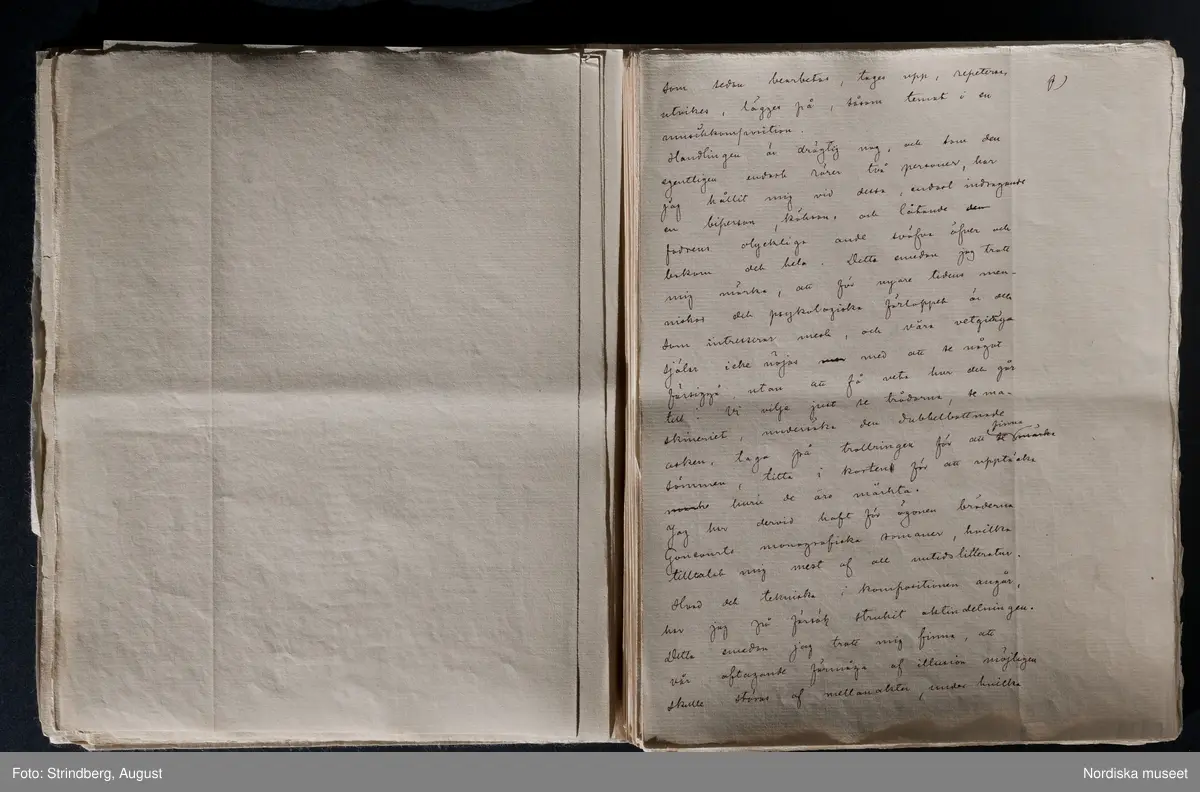 9)
som sedan bearbetas, tages upp, repeteras,
utvikes, lägges på, såsom temat i en
musikkomposition.
Handlingen är dräglig nog, och som den
egentligen endast rörer två personer, har
jag hållit mig vid dessa, endast indragande
en biperson, köksan, och låtande den
fadrens olyckliga ande sväfva öfver och
bakom det hela. Detta emedan jag trott
mig märka, att för nyare tidens men-
niskor det psykologiska förloppet är det
som intresserar mest, och våra vetgiriga
själar icke nöjas med att se något
försiggå utan att få veta hur det går
till! Vi vilja just se trådarna, se ma-
skineriet, undersöka den dubbelbottnade
asken, taga på trollringen för att finna
sömmen, titta i korten för att upptäcka
huru de äro märkta.
Jag har dervid haft för ögonen bröderna
Goncourts monografiska romaner, hvilka
tilltalat mig mest af all nutidslitteratur.
Hvad det tekniska i kompositionen angår,
har jag på försök strukit aktindelningen.
Detta emedan jag trott mig finna, att
vår aftagande förmåga af illusion möjligen
skulle störas af mellanakter, under hvilka
Foto: Strindberg, August
Nordiska museet